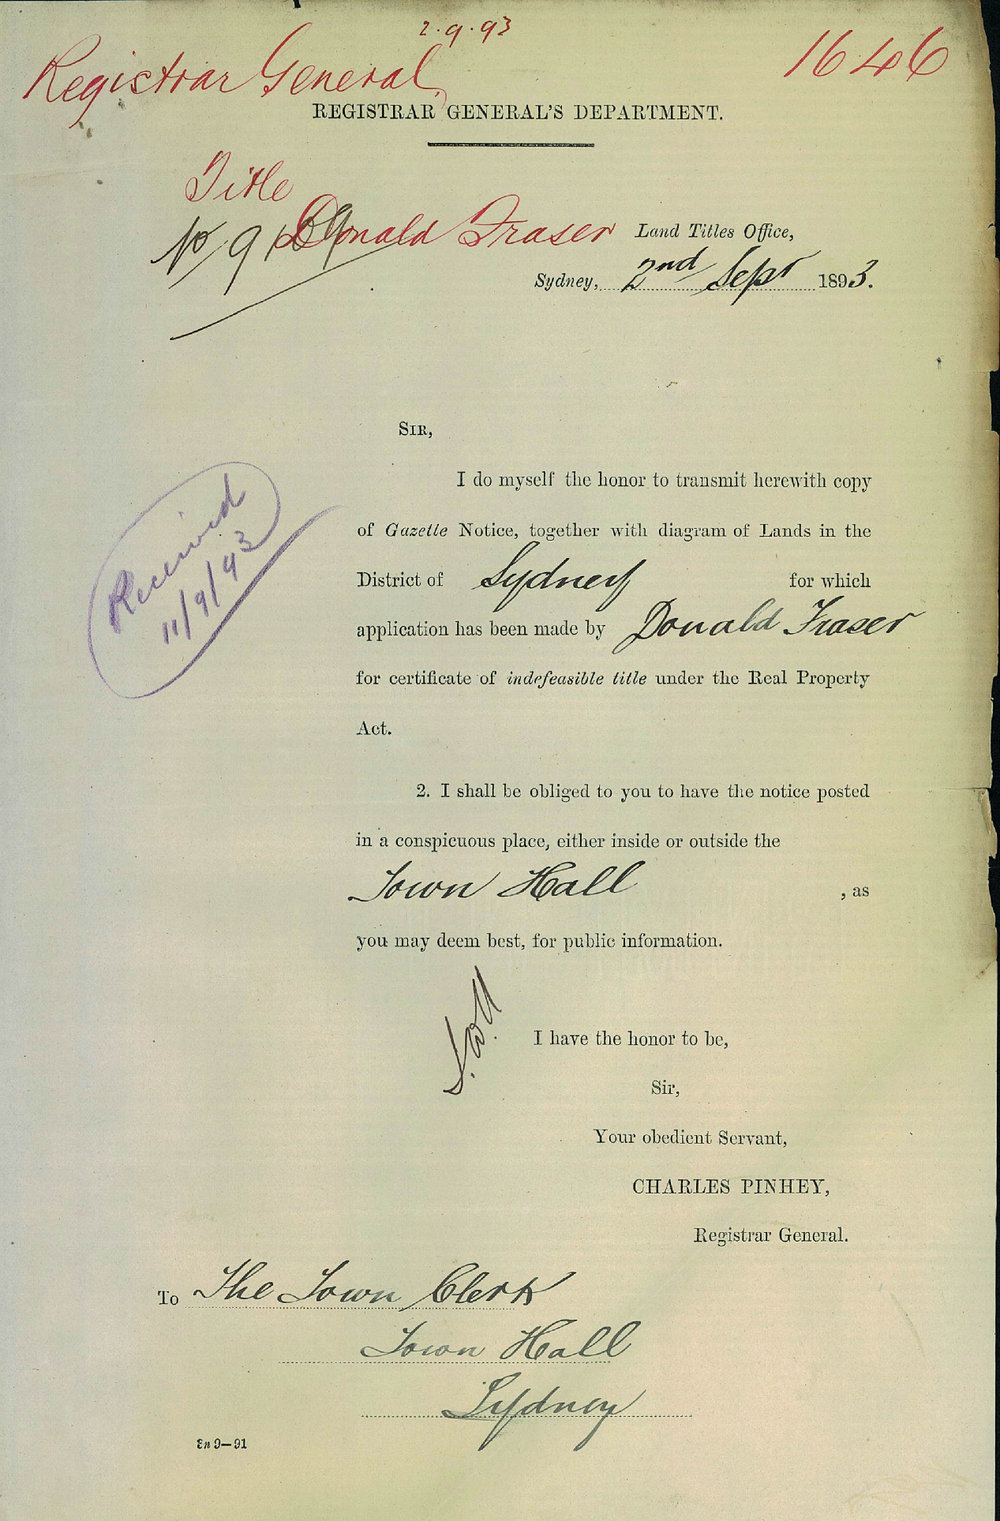 2.9.93
Registrar General
1646
REGISTRAR GENERAL'S DEPARTMENT.
Title
No 9159
Donald Fraser
Land Titles Office,
Sydney, 2nd Sept 1893.
SIR,
I do myself the honor to transmit herewith copy
of Gazette Notice, together with diagram of Lands in the
District of Sydney for which
application has been made by Donald Fraser
for certificate of indefeasible title under the Real Property
Act.
Received
11/9/93
2. I shall be obliged to you to have the notice posted
in a conspicuous place, either inside or outside the
Town Hall , as
you may deem best, for public information.
I have the honor to be,
Sir,
Your obedient Servant,
CHARLES PINHEY,
Registrar General.
To The Town Clerk
Town Hall
Sydney
9—91